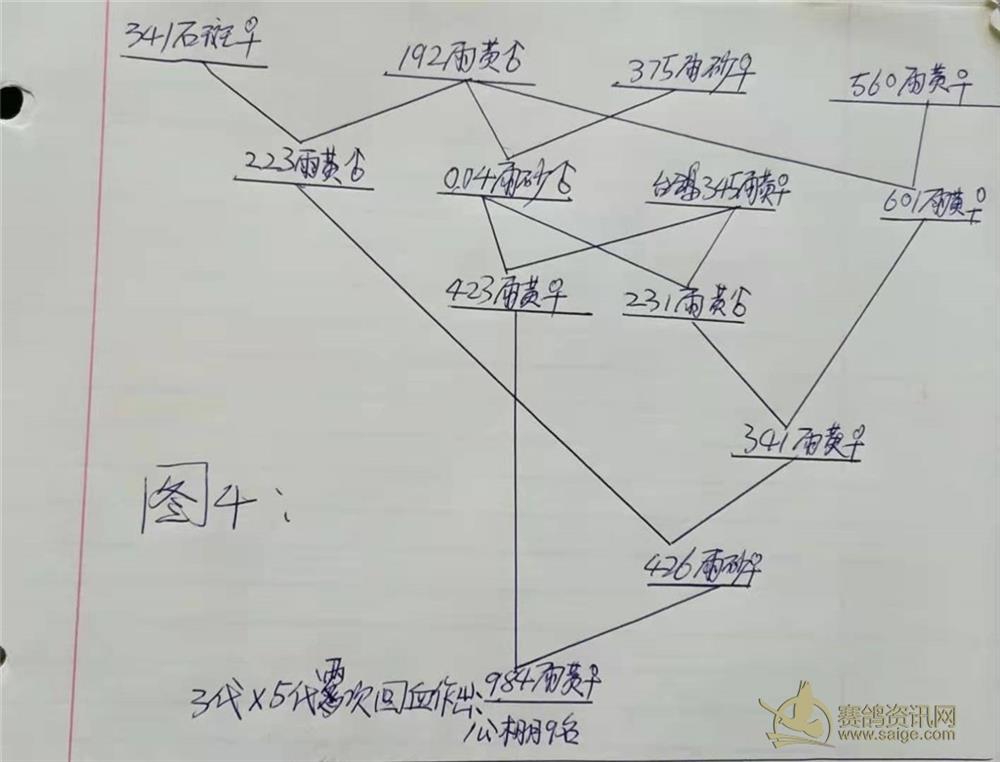 341石斑♀
192雨黄♂
375雨砂♀
560雨黄♀
223雨黄♂
004雨砂♂
台湾345雨黄♀
601雨黄♀
423雨黄♀
231雨黄♂
341雨黄♀
图4：
426雨砂♀
984雨黄♀
3代×5代 次回血作出
公棚9名
赛鸽资讯网
www.saige.com